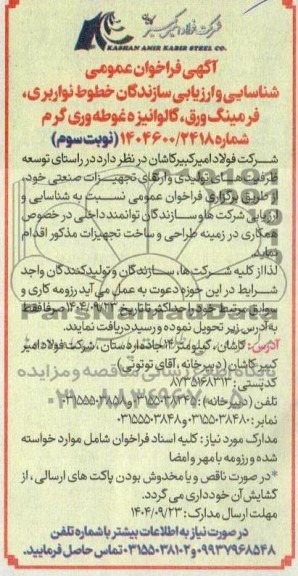 شرکت فولاد امیرکبیر کاشان
KASHAN AMIR KABIR STEEL CO.
آگهی فراخوان عمومی
شناسایی و ارزیابی سازندگان خطوط نوار بری،
فرمینگ ورق، گالوانیزه غوطه وری گرم
شماره ۱۴۰۴۶۰۰/۲۴۱۸ (نوبت سوم)
شرکت فولاد امیرکبیر کاشان در نظر دارد در راستای توسعه
ظرفیت های تولیدی و ارتقای تجهیزات صنعتی خود،
از طریق برگزاری فراخوان عمومی نسبت به شناسایی و
ارزیابی شرکت ها و سازندگان توانمند داخلی در خصوص
همکاری در زمینه طراحی و ساخت تجهیزات مذکور اقدام
نماید.
لذا از کلیه شرکت ها، سازندگان و تولیدکنندگان واجد
شرایط در این حوزه دعوت به عمل می آید رزومه کاری و
سوابق مرتبط خود را حداکثر تا تاریخ ۱۴۰۴/۰۹/۲۳ صرفا فقط
به آدرس زیر تحویل نموده و رسید دریافت نمایند.
آدرس: کاشان، کیلومتر ۱۴ جاده اردستان، شرکت فولاد امیر
کبیر کاشان (دبیرخانه، آقای توتونی)
کد پستی: ۸۷۳۵۱۶۸۳۱۳
تلفن (دبیرخانه): و ۰۳۱۵۵۵۰۳۸۵۸
نمابر: ۰۳۱۵۵۰۳۸۴۸۰ و ۰۳۱۵۵۵۰۳۸۴۸
مدارک مورد نیاز: کلیه اسناد فراخوان شامل موارد خواسته
شده و رزومه با مهر و امضا
* در صورت ناقص و یا مخدوش بودن پاکت های ارسالی، از
گشایش آن خودداری می گردد.
مهلت ارسال مدارک: ۱۴۰۴/۰۹/۲۳
در صورت نیاز به اطلاعات بیشتر با شماره تلفن
۰۹۹۳۷۹۶۸۵۴۸ و ۰۳۱۵۵۰۳۸۱۰۲ تماس حاصل فرمایید.